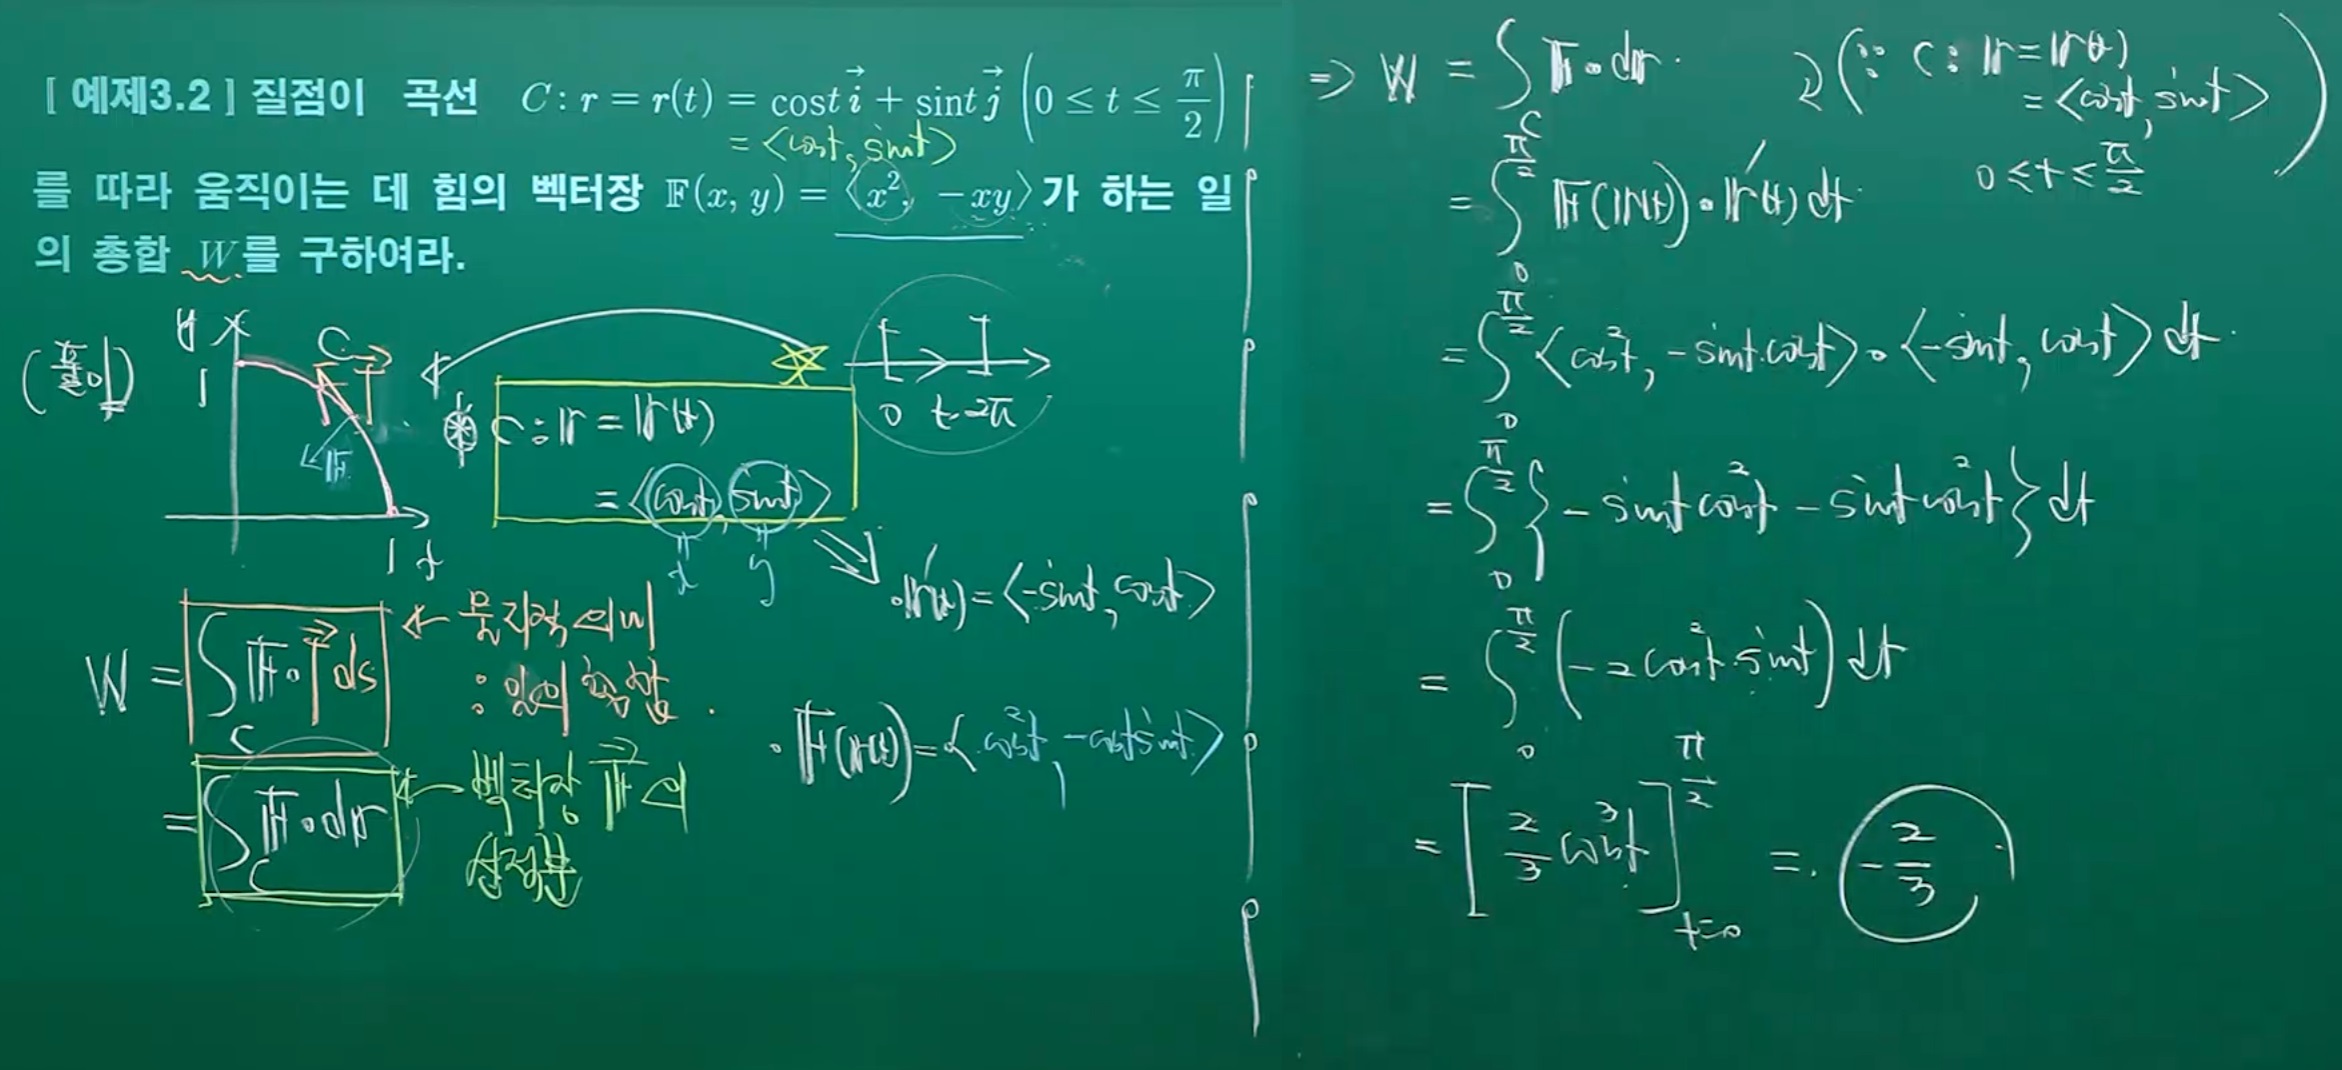 [ 예제3.2 ] 질점이 곡선 C : r = r(t) = cost i⃗ + sint j⃗ (0 ≤ t ≤ π/2)
= <cost, sint>
를 따라 움직이는 데 힘의 벡터장 𝔽(x, y) = ⟨x², −xy⟩가 하는 일
의 총합 W를 구하여라.
(풀이)
y
1
C
T⃗
𝔽
1 x
0 t 2π
C : r = r(t)
= <cost, sint>
x y
• r′(t) = <-sint, cost>
W = ∫_C 𝔽 • T⃗ ds ← 물리적 의미
: 일의 총합
• 𝔽(r(t)) = <cos²t, -cost sint>
= ∫_C 𝔽 • dr ← 벡터장 𝔽의
선적분
⇒ W = ∫_C 𝔽 • dr
(∵ C : r = r(t)
= <cost, sint>
0 ≤ t ≤ π/2)
= ∫_0^{π/2} 𝔽(r(t)) • r′(t) dt
= ∫_0^{π/2} <cos²t, -sint cost> • <-sint, cost> dt
= ∫_0^{π/2} { - sint cos²t - sint cos²t } dt
= ∫_0^{π/2} (-2cos²t sint) dt
= [ 2/3 cos³t ]_{t=0}^{π/2} = -2/3